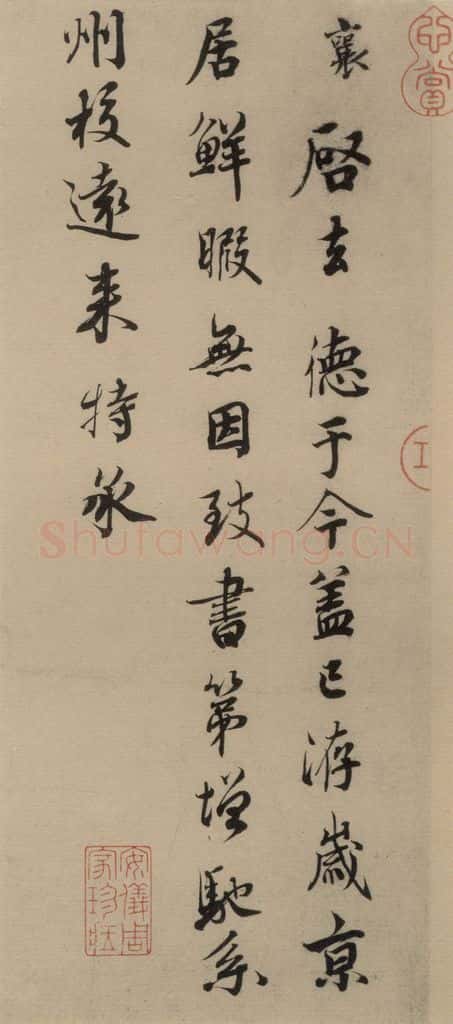 襄啓去德于今盖已洊歲京
居鮮暇無因致書第增馳系
州校遠来特承
安儀周家珍藏
Shufawang.CN